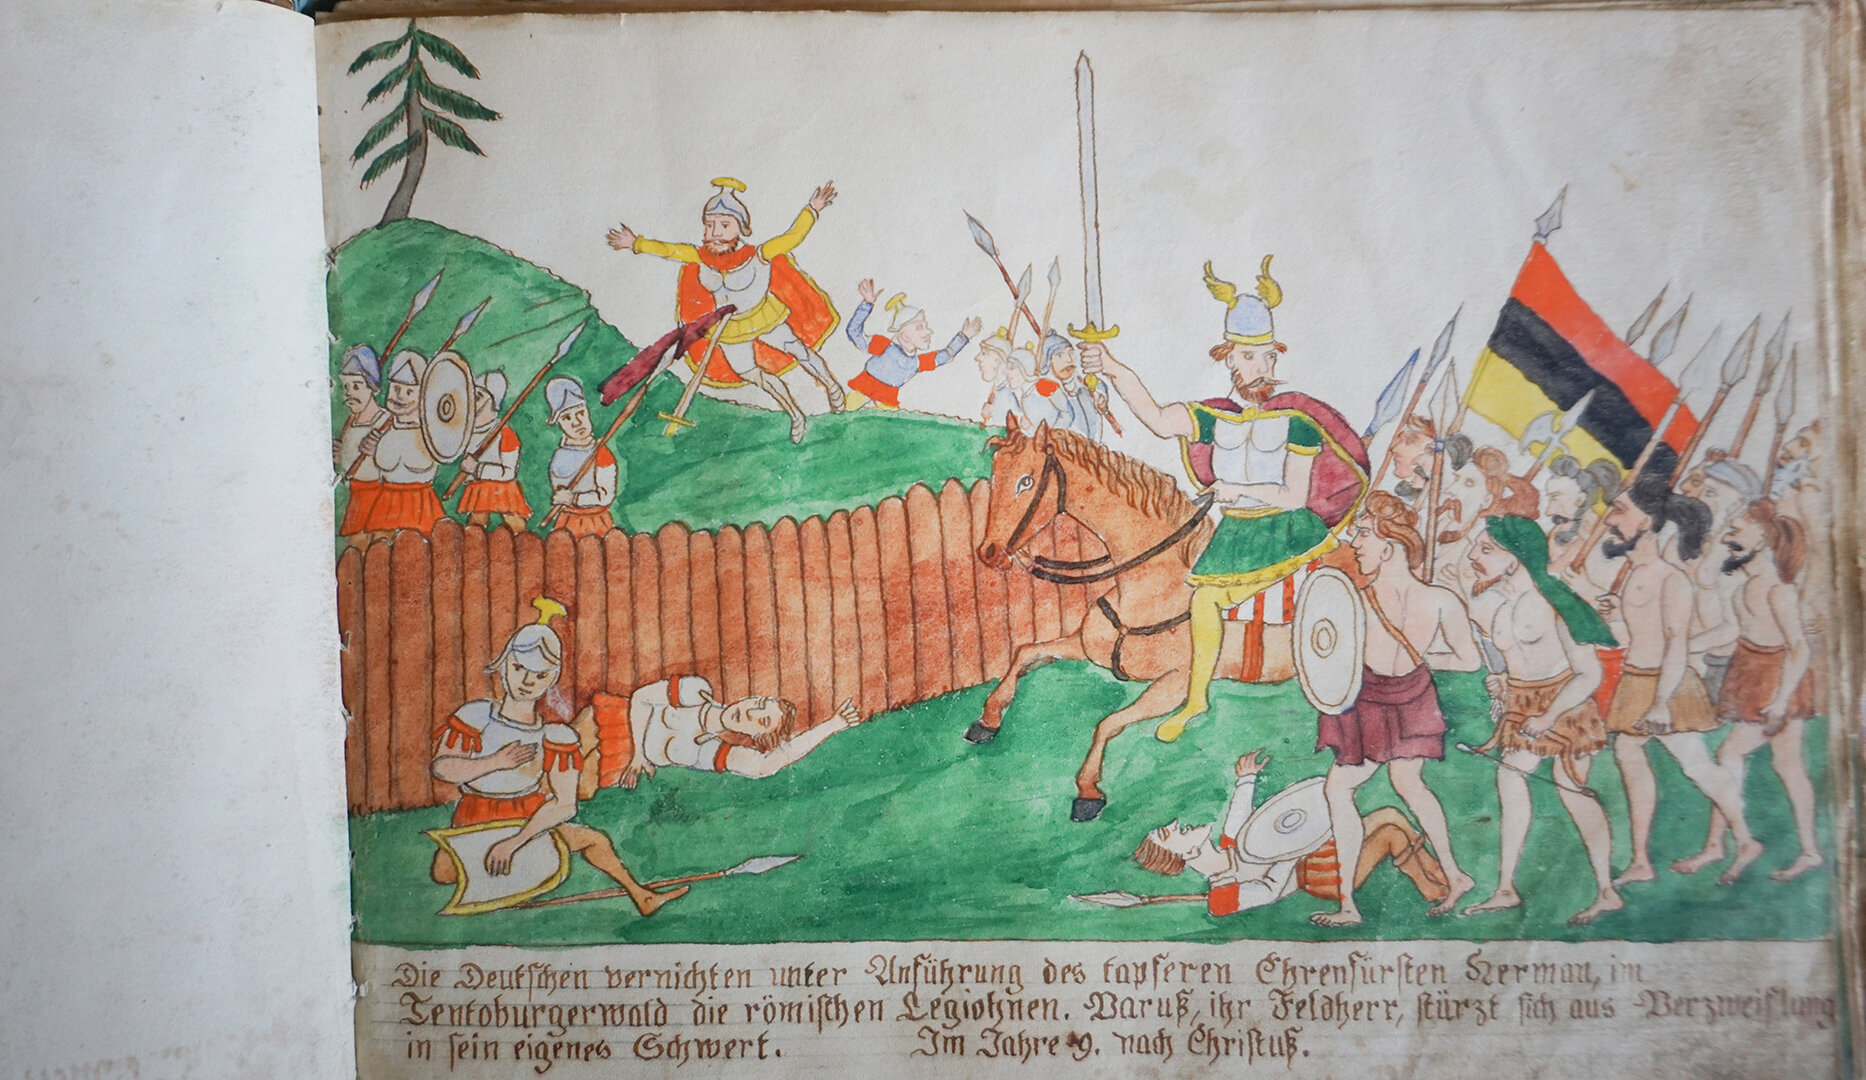 Die Deutschen vernichten unter Anführung des tapferen Ehrenfürsten Herman, im
Teutoburgerwald die römischen Legiohnen. Varuß, ihr Feldherr, stürzt sich aus Verzweiflung
in sein eigenes Schwert. Im Jahre 9. nach Christuß.